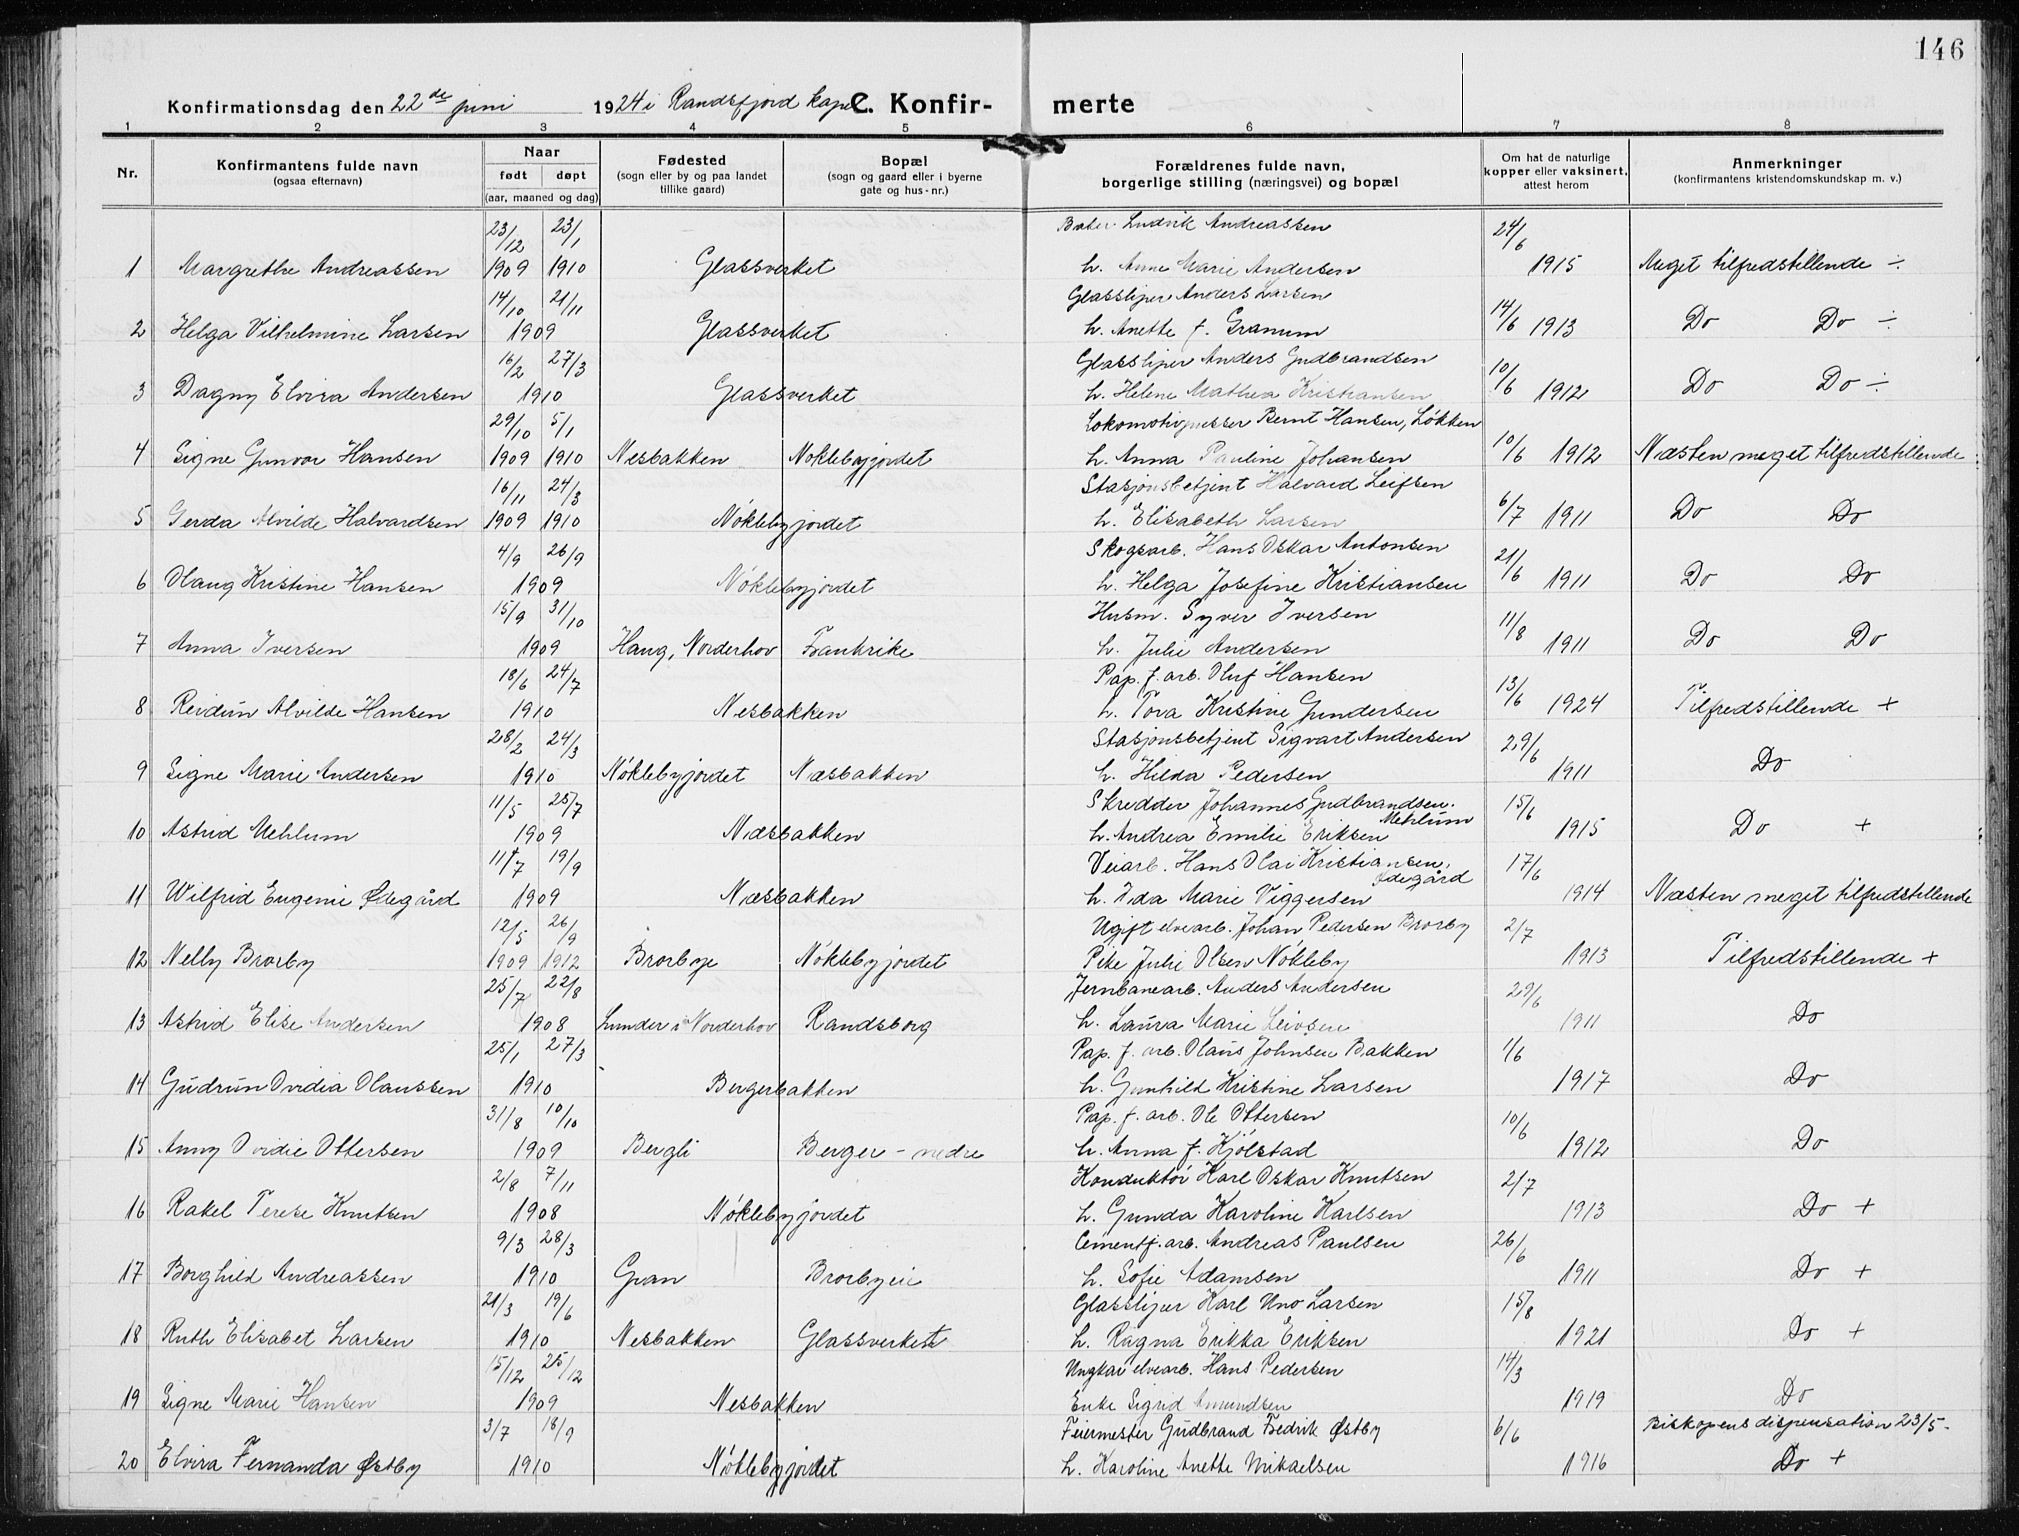 146
Konfirmationsdag den 22de juni 1924 i Randsfjord kapel C. Konfirmerte
1 2 3 4 5 6 7 8
Nr. Konfirmantens fulde navn (ogsaa efternavn) Naar født døpt (aar, maaned og dag) Fødested (sogn eller by og paa landet tillike gaard) Bopæl (sogn og gaard eller i byerne gate og hus-nr.) Forældrenes fulde navn, borgerlige stilling (næringsvei) og bopæl Om hat de naturlige kopper eller vaksinert, attest herom Anmerkninger (konfirmantens kristendomskundskap m. v.)
23/12 23/1 Ludvik Andreassen 24/6
1 Margrethe Andreassen 1909 1910 Glassverket h. Anne Marie Andersen 1915 Meget tilfredstillende ÷
14/10 21/11 Glassliper Anders Larsen
2 Helga Vilhelmine Larsen 1909 Glassverket h. Anette f. Granum 14/6 1913 Do Do ÷
16/2 27/3 Glassliper Anders Gudbrandsen
3 Dagny Elvira Andersen 1910 Glassverket h. Helene Mathea Kristiansen 10/6 1912 Do Do ÷
29/10 5/1 Lokomotivpusser Bernt Hansen, Løkken
4 Signe Gunvor Hansen 1909 1910 Nesbakken Nøklebyjordet h. Anna Pauline Johansen 10/6 1912 Næsten meget tilfredstillende
16/11 24/3 Stasjonsbetjent Halvard Leifsen
5 Gerda Alvilde Halvardsen 1909 1910 Nøklebyjordet h. Elisabeth Larsen 6/7 1911 Do Do
4/9 26/9 Skogsarb. Hans Oskar Antonsen
6 Olaug Kristine Hansen 1909 Nøklebyjordet h. Helga Josefine Kristiansen 21/6 1911 Do Do
15/9 31/10 Husm. Syver Iversen
7 Anna Iversen 1909 Haug, Norderhov Frankrike h. Julie Andersen 11/8 1911 Do Do
18/6 24/7 Pap. f. arb. Oluf Hansen
8 Reidun Alvilde Hansen 1910 Nesbakken h. Tora Kristine Gundersen 13/6 1924 Tilfredstillende +
28/2 24/3 Stasjonsbetjent Sigvart Andersen
9 Signe Marie Andersen 1910 Nøklebyjordet Næsbakken h. Hilda Pedersen 29/6 1911 Do
11/5 25/7 Skredder Johannes Gudbrandsen Mehlum
10 Astrid Mehlum 1909 Næsbakken h. Andrea Emilie Eriksen 15/6 1915 Do +
11/7 19/9 Veiarb. Hans Olai Kristiansen, Ødegård
11 Wilfrid Eugenie Ødegård 1909 Næsbakken h. Ida Marie Viggersen 17/6 1914 Næsten meget tilfredstillende
12/5 26/9 Ugift elvearb. Johan Pedersen Brorby
12 Nelly Brorby 1909 1912 Brorbye Nøklebyjordet Pike Julie Olsen Nøkleby 2/7 1913 Tilfredstillende +
25/7 22/8 Jernbanearb. Anders Andersen
13 Astrid Elise Andersen 1908 Lunder i Norderhov Randsborg h. Laura Marie Leivsen 29/6 1911 Do
25/1 27/3 Pap. f. arb. Olaus Johnsen Bakken
14 Gudrun Ovidia Olaussen 1910 Bergerbakken h. Gunhild Kristine Larsen 1/6 1917 Do
31/8 10/10 Pap. f. arb. Ole Ottersen
15 Anny Ovidie Ottersen 1909 Bergli Berger - nedre h. Anna f. Kjølstad 10/6 1912 Do
2/8 7/11 Konduktør Karl Oskar Knutsen
16 Rakel Terese Knutsen 1908 Nøklebyjordet h. Gunda Karoline Karlsen 2/7 1913 Do +
9/3 28/3 Cementf. arb. Andreas Paulsen
17 Borghild Andreassen 1910 Gran Brorbyeie h. Sofie Adamsen 26/6 1911 Do +
21/3 19/6 Glassliper Karl Uno Larsen
18 Ruth Elisabet Larsen 1910 Nesbakken Glassverket h. Ragna Erikka Eriksen 15/8 1921 Do +
15/12 25/12 Ungkar elvearb. Hans Pedersen
19 Signe Marie Hansen 1909 Nesbakken Enke Sigrid Amundsen 14/3 1919 Do
3/7 18/9 Feiermester Gudbrand Fredrik Østby Biskopens dispensation 23/5.
20 Elvira Fernanda Østby 1910 Nøklebyjordet h. Karoline Anette Mikaelsen 6/6 1916 Do +